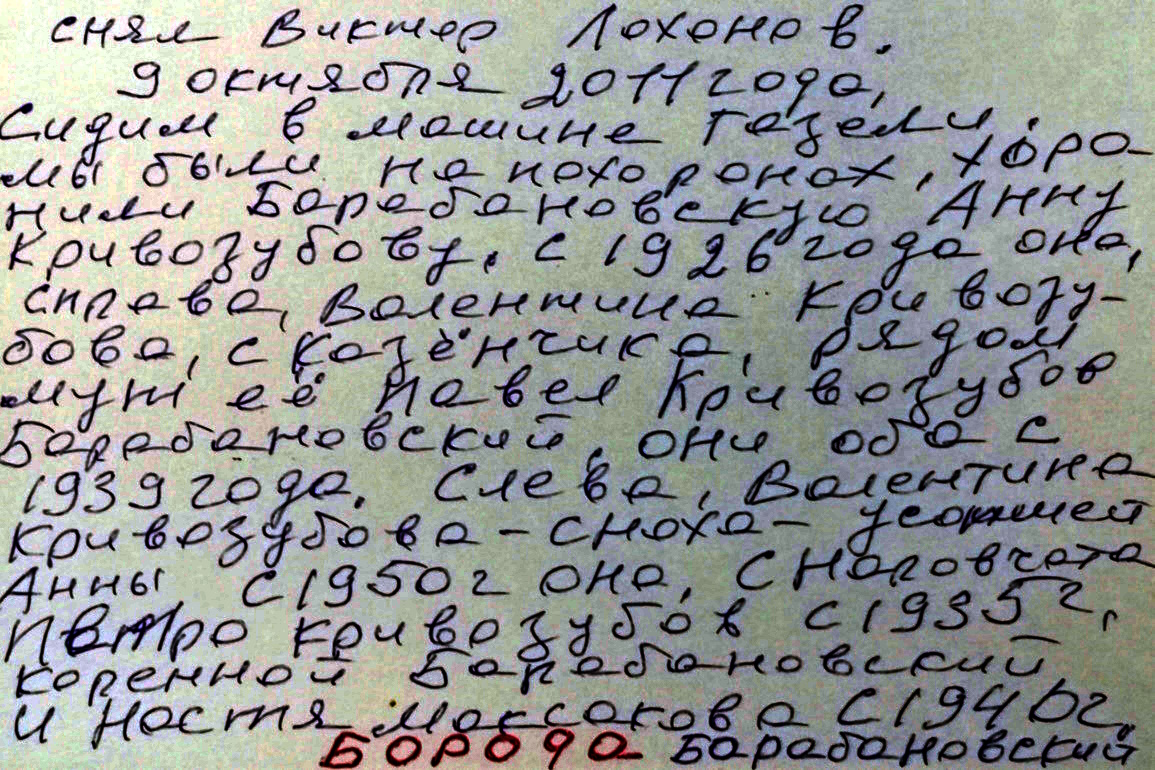 снял Виктор Лохонов.
9 октября 2011 года,
Сидим в машине Газели.
мы были на похоронах, хоро-
нили Барабановскую Анну
Кривозубову, с 1926 года она,
справа, Валентина Кривозу-
бова, с Казёнчика, рядом
муж её Павел Кривозубов
Барабановский, они оба с
1939 года. Слева, Валентина
Кривозубова-сноха- усопшей
Анны с 1950г она, с Наровчата
Пётро кривозубов с 1935г,
коренной Барабановский
и Настя Максакова с 1940г.
БОРОДА Барабановский